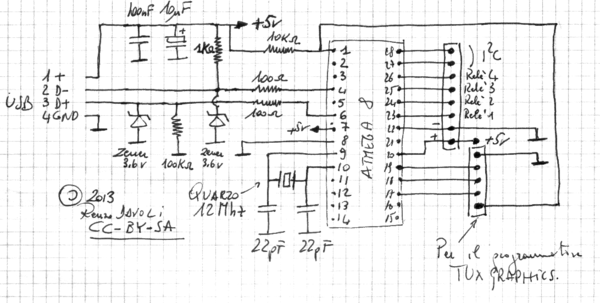 100nF 10µF
+5V
10KΩ
1KΩ
1 +
2 D-
3 D+
4 GND
USB
100Ω
100Ω
+5V
Zener
3.6V
100KΩ
Zener
3.6V
1
2
3
4
5
6
7
8
9
10
11
12
13
14
ATMEGA 8
28
27
26
25
24
23
22
21
20
19
18
17
16
15
I²C
Relè 4
Relè 3
Relè 2
Relè 1
-
+
+5V
QUARZO
12MHz
22pF 22pF
© 2013
Renzo Davoli
CC-BY-SA
Per il programmatore
TUXGRAPHICS.